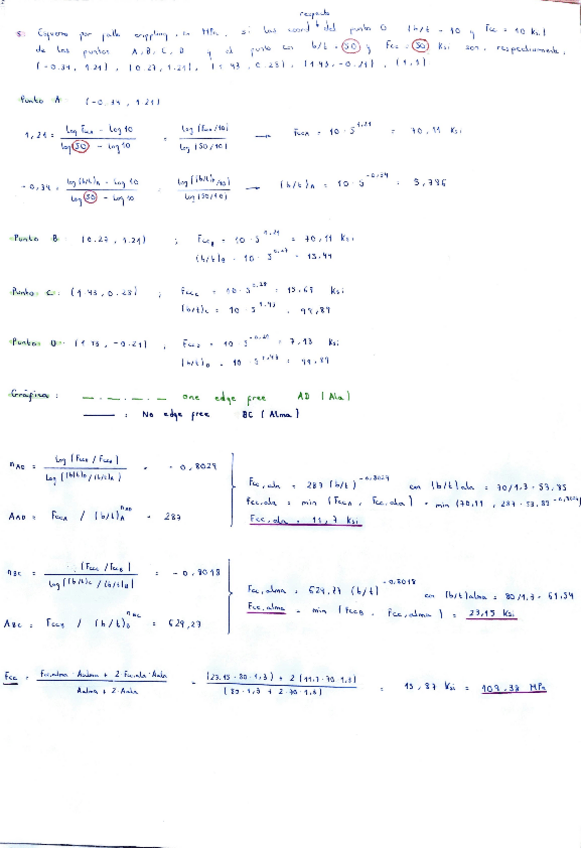 respecto
5. Esfuerzo por fallo crippling, en MPa, si las coord del punto O (b/t = 10 y Fcc = 10 Ksi)
de los puntos A, B, C, D y el punto con b/t = 50 y Fcc = 50 Ksi son, respectivamente,
(-0.34, 1.21), (0.27, 1.21), (1.43, 0.28), (1.43, -0.21), (1,1)
Punto A: (-0.34, 1.21)
1,21 = (log FccA - log 10) / (log 50 - log 10) = log(FccA/10) / log(50/10) → FccA = 10·5^1,21 = 70,11 Ksi
-0,34 = (log(b/t)A - log 10) / (log 50 - log 10) = log((b/t)A/10) / log(50/10) → (b/t)A = 10·5^-0,34 = 5,786
Punto B: (0.27, 1.21) ; FccB = 10·5^1.21 = 70,11 Ksi
(b/t)B = 10·5^0.27 = 15.44
Punto C: (1.43, 0.28) ; FccC = 10·5^0.28 = 15,69 Ksi
(b/t)C = 10·5^1.43 = 99,89
Punto D: (1.43, -0.21) ; FccD = 10·5^-0.21 = 7,13 Ksi
(b/t)D = 10·5^1,43 = 99.89
Gráfica: — · — · — · — one edge free AD (Ala)
——— : No edge free BC (Alma)
nAD = log(FccD / FccA) / log((b/t)D / (b/t)A) = -0,8024
Fcc,ala = 287 (b/t)^-0,8024 con (b/t)ala = 70/1.3 = 53,85
Fcc,ala = min (FccA, Fcc,ala) = min (70,11, 287·53,85^-0,8024)
AAD = FccA / (b/t)A^nAD = 287
Fcc,ala = 11,7 Ksi
nBC = log(FccC / FccB) / log((b/t)C / (b/t)B) = -0,8018
Fcc,alma = 624,27 (b/t)^-0,8018 con (b/t)alma = 80/1.3 = 61,54
Fcc,alma = min (FccB, Fcc,alma) = 23,15 Ksi
ABC = FccB / (b/t)B^nBC = 624,27
Fcc = (Fcc,alma · Aalma + 2·Fcc,ala·Aala) / (Aalma + 2·Aala) = ((23.15·80·1,3) + 2(11.7·70·1,3)) / (80·1,3 + 2·70·1,3) = 15,87 Ksi = 109,38 MPa